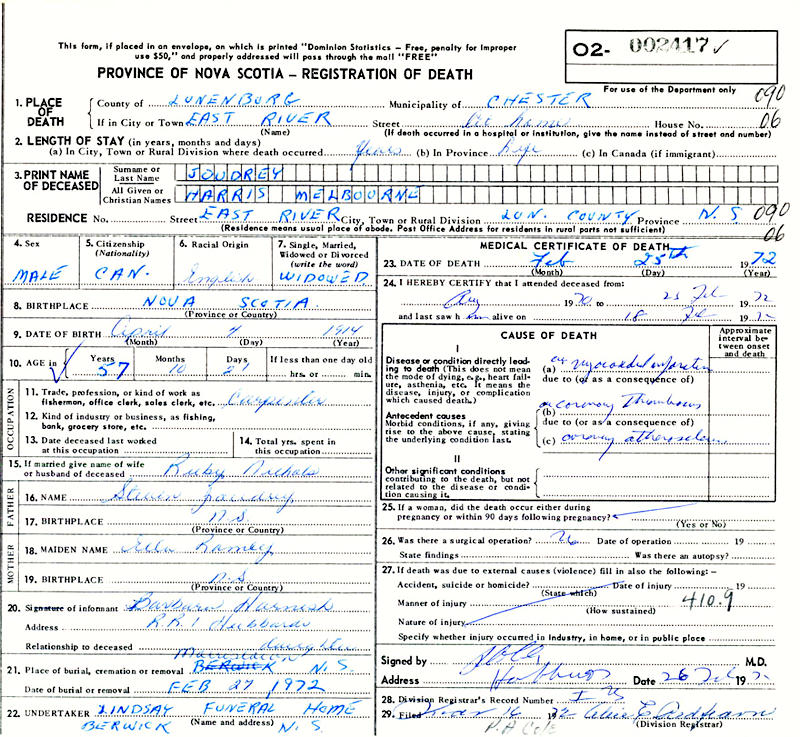 This form, if placed in an envelope, on which is printed "Dominion Statistics – Free, penalty for improper
use $50," and properly addressed will pass through the mail "FREE"
PROVINCE OF NOVA SCOTIA – REGISTRATION OF DEATH
02- 002417 ✓
For use of the Department only
090
06
1. PLACE OF DEATH
County of LUNENBURG Municipality of CHESTER
If in City or Town EAST RIVER Street At home House No.
(Name) (If death occurred in a hospital or institution, give the name instead of street and number)
2. LENGTH OF STAY (in years, months and days)
(a) In City, Town or Rural Division where death occurred Years (b) In Province Life (c) In Canada (if immigrant)
3. PRINT NAME OF DECEASED
Surname or Last Name JOUDREY
All Given or Christian Names HARRIS MELBOURNE
RESIDENCE No. Street EAST RIVER City, Town or Rural Division LUN. COUNTY Province N.S 090
(Residence means usual place of abode. Post Office Address for residents in rural parts not sufficient) 06
4. Sex MALE
5. Citizenship (Nationality) CAN.
6. Racial Origin English
7. Single, Married, Widowed or Divorced (write the word) WIDOWED
8. BIRTHPLACE NOVA SCOTIA
(Province or Country)
9. DATE OF BIRTH April 4 1914
(Month) (Day) (Year)
10. AGE in Years 57 Months 10 Days 21 If less than one day old
hrs. or min.
OCCUPATION
11. Trade, profession, or kind of work as fisherman, office clerk, sales clerk, etc. Carpenter
12. Kind of industry or business, as fishing, bank, grocery store, etc.
13. Date deceased last worked at this occupation
14. Total yrs. spent in this occupation
15. If married give name of wife or husband of deceased Ruby Nichols
FATHER
16. NAME Steven Joudrey
17. BIRTHPLACE N.S
(Province or Country)
MOTHER
18. MAIDEN NAME Ramey
19. BIRTHPLACE N.S
(Province or Country)
20. Signature of informant Barbara Harnish
Address R.R.1 Hubbards
Relationship to deceased daughter
21. Place of burial, cremation or removal BERWICK N.S.
Date of burial or removal FEB 27 1972
22. UNDERTAKER LINDSAY FUNERAL HOME
(Name and address)
BERWICK N.S.
MEDICAL CERTIFICATE OF DEATH
23. DATE OF DEATH Feb 25th 1972
(Month) (Day) (Year)
24. I HEREBY CERTIFY that I attended deceased from:
Aug 1970 to 25 Feb 1972
and last saw him alive on 18 Feb 1972
CAUSE OF DEATH
Approximate interval between onset and death
I
Disease or condition directly leading to death (This does not mean the mode of dying, e.g., heart failure, asthenia, etc. It means the disease, injury, or complication which caused death.)
(a) ac myocardial infarction
due to (or as a consequence of)
Antecedent causes
Morbid conditions, if any, giving rise to the above cause, stating the underlying condition last.
(b) ac coronary thrombosis
due to (or as a consequence of)
(c) coronary atherosclerosis
II
Other significant conditions contributing to the death, but not related to the disease or condition causing it.
25. If a woman, did the death occur either during
pregnancy or within 90 days following pregnancy?
(Yes or No)
26. Was there a surgical operation? No Date of operation 19
State findings Was there an autopsy?
27. If death was due to external causes (violence) fill in also the following:–
Accident, suicide or homicide? Date of injury 19
(State which)
Manner of injury 410.9
(How sustained)
Nature of injury
Specify whether injury occurred in industry, in home, or in public place
Signed by M.D.
Address Hubbards Date 26 Feb 1972
28. Division Registrar's Record Number
29. Filed Mar 16 1972
(Division Registrar)